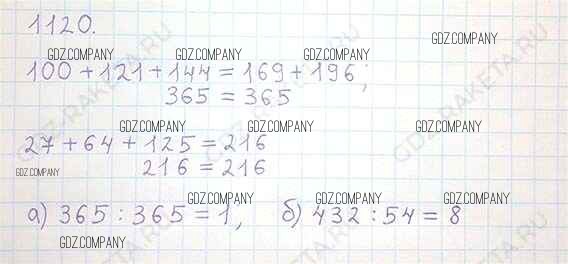 1120.
100 + 121 + 144 = 169 + 196;
365 = 365
27 + 64 + 125 = 216
216 = 216
а) 365 : 365 = 1, б) 432 : 54 = 8
GDZ.COMPANY
GDZ.COMPANY
GDZ.COMPANY
GDZ.COMPANY
GDZ.COMPANY
GDZ.COMPANY
GDZ.COMPANY
GDZ.COMPANY
GDZ.COMPANY
GDZ.COMPANY
GDZ.COMPANY
GDZ.COMPANY
GDZ-RAKETA.RU
GDZ-RAKETA.RU